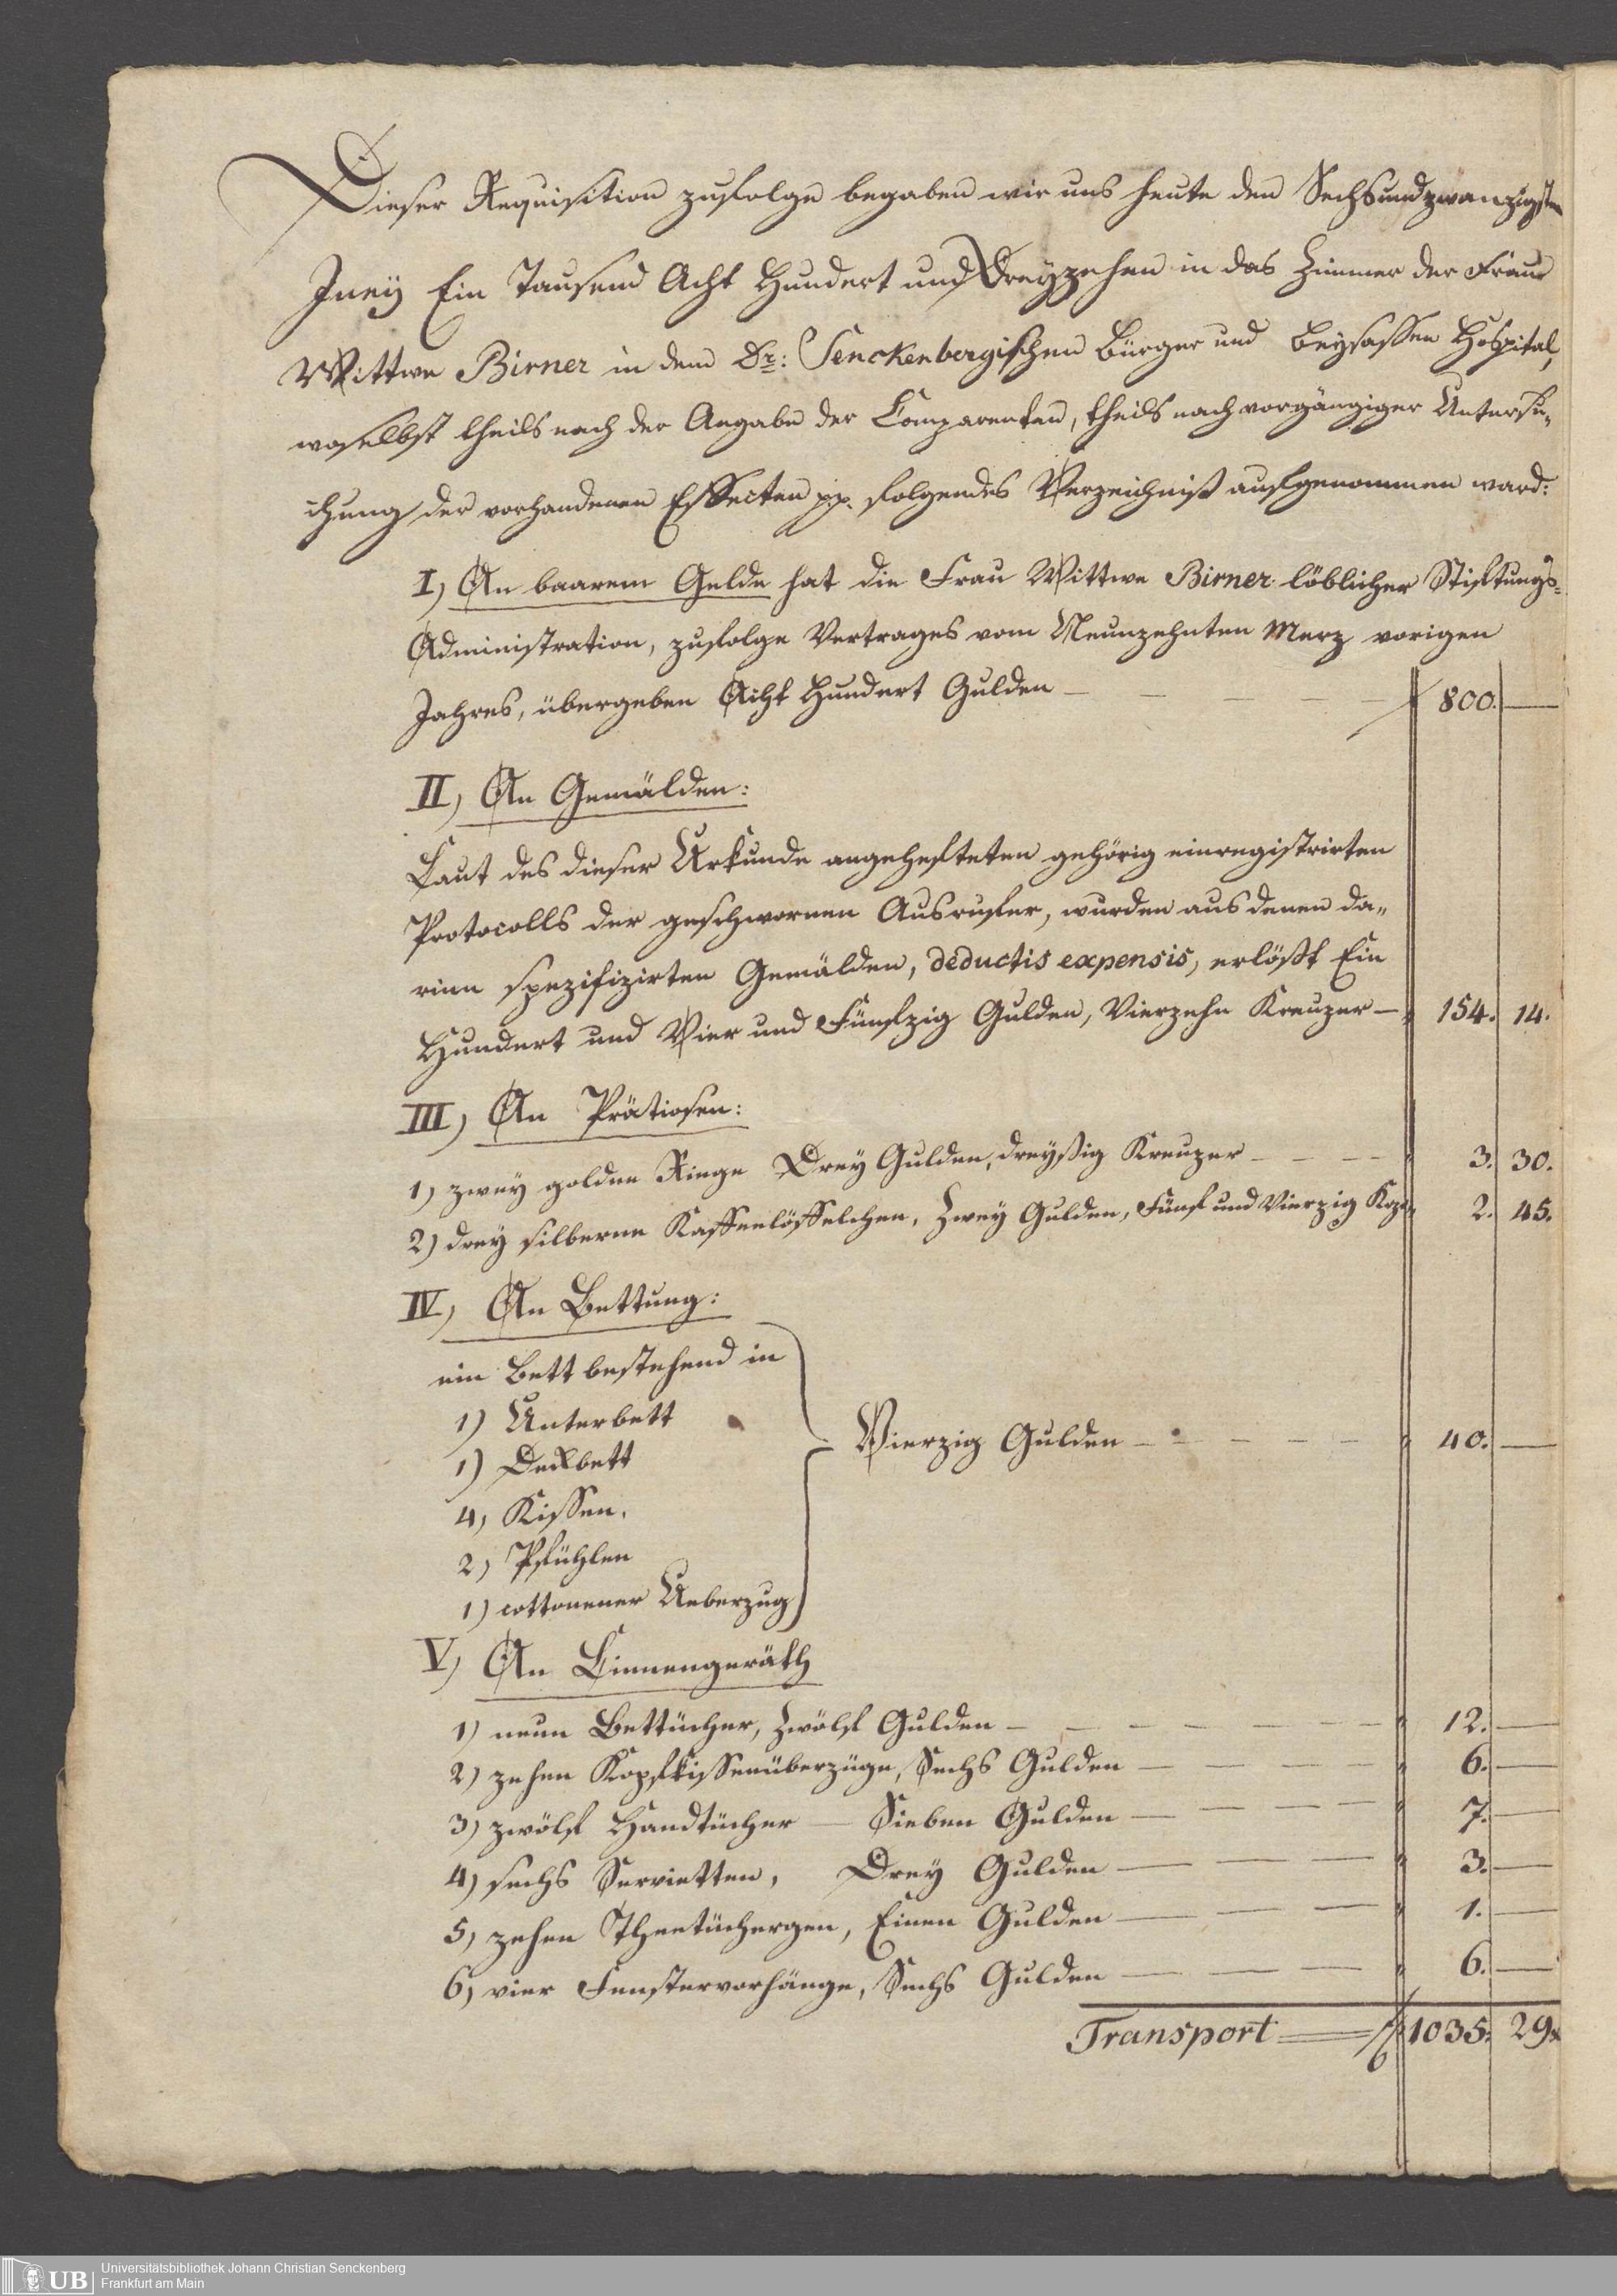 Dieser Requisition zufolge begaben wir uns heute den Sechsundzwanzigsten
Juny Ein Tausend Acht Hundert und Dreyzehen in das Zimmer der Frau
Wittwe Birner in dem Dr: Senckenbergischen Bürger und Beysassen Hospital,
woselbst theils nach der Angabe der Comparenten, theils nach vorgängiger Untersu„
chung der vorhandenen Effecten pp. folgendes Verzeichniß aufgenommen ward:
I) An baarem Gelde hat die Frau Wittwe Birner löblicher Stiftungs-
Administration, zufolge Vertrages vom Neunzehnten Merz vorigen
Jahres, übergeben Acht Hundert Gulden — — — — f 800. —
II) An Gemälden:
Laut des dieser Urkunde angehefteten gehörig einregistrirten
Protocolls der geschwornen Ausrufer, wurden aus denen da„
rinn spezifizirten Gemälden, deductis expensis, erlößt Ein
Hundert und Vier und Fünfzig Gulden, Vierzehn Kreuzer — " 154. 14.
III) An Prätiosen:
1) zwey goldne Ringe Drey Gulden, dreyßig Kreuzer — — — — " 3. 30.
2) drey silberne Kaffeelöffelchen, Zwey Gulden, Fünf und Vierzig Kzr " 2. 45.
IV) An Bettung:
ein Bett bestehend in
1) Unterbett
Vierzig Gulden — — — — — " 40. —
1) Deckbett
4) Kissen.
2) Pfühlen
1) cottonener Ueberzug
V) An Linnengeräth
1) neun Bettücher, Zwölf Gulden — — — — — — " 12. —
2) zehen Kopfkissenüberzüge, Sechs Gulden — — — — " 6. —
3) zwölf Handtücher — Sieben Gulden — — — — " 7. —
4) sechs Servietten, Drey Gulden — — — " 3. —
5) zehen Theetüchergen, Einen Gulden — — — " 1. —
6) vier Fenstervorhänge, Sechs Gulden — — — " 6. —
Transport = f 1035. 29x
Universitätsbibliothek Johann Christian Senckenberg
Frankfurt am Main
UB